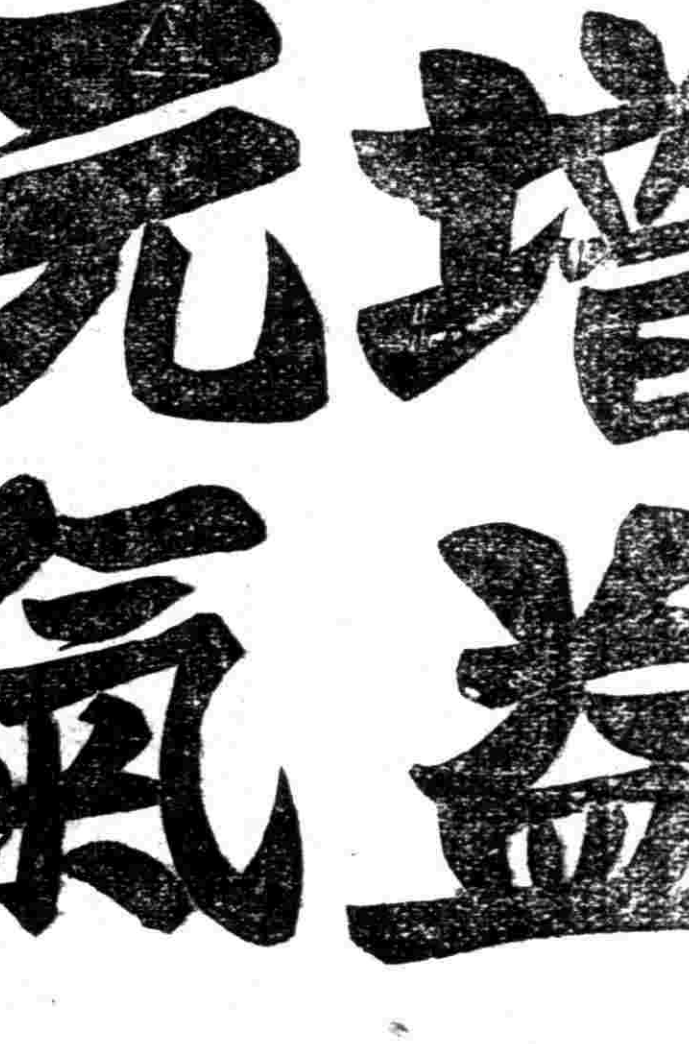 增益
元氣